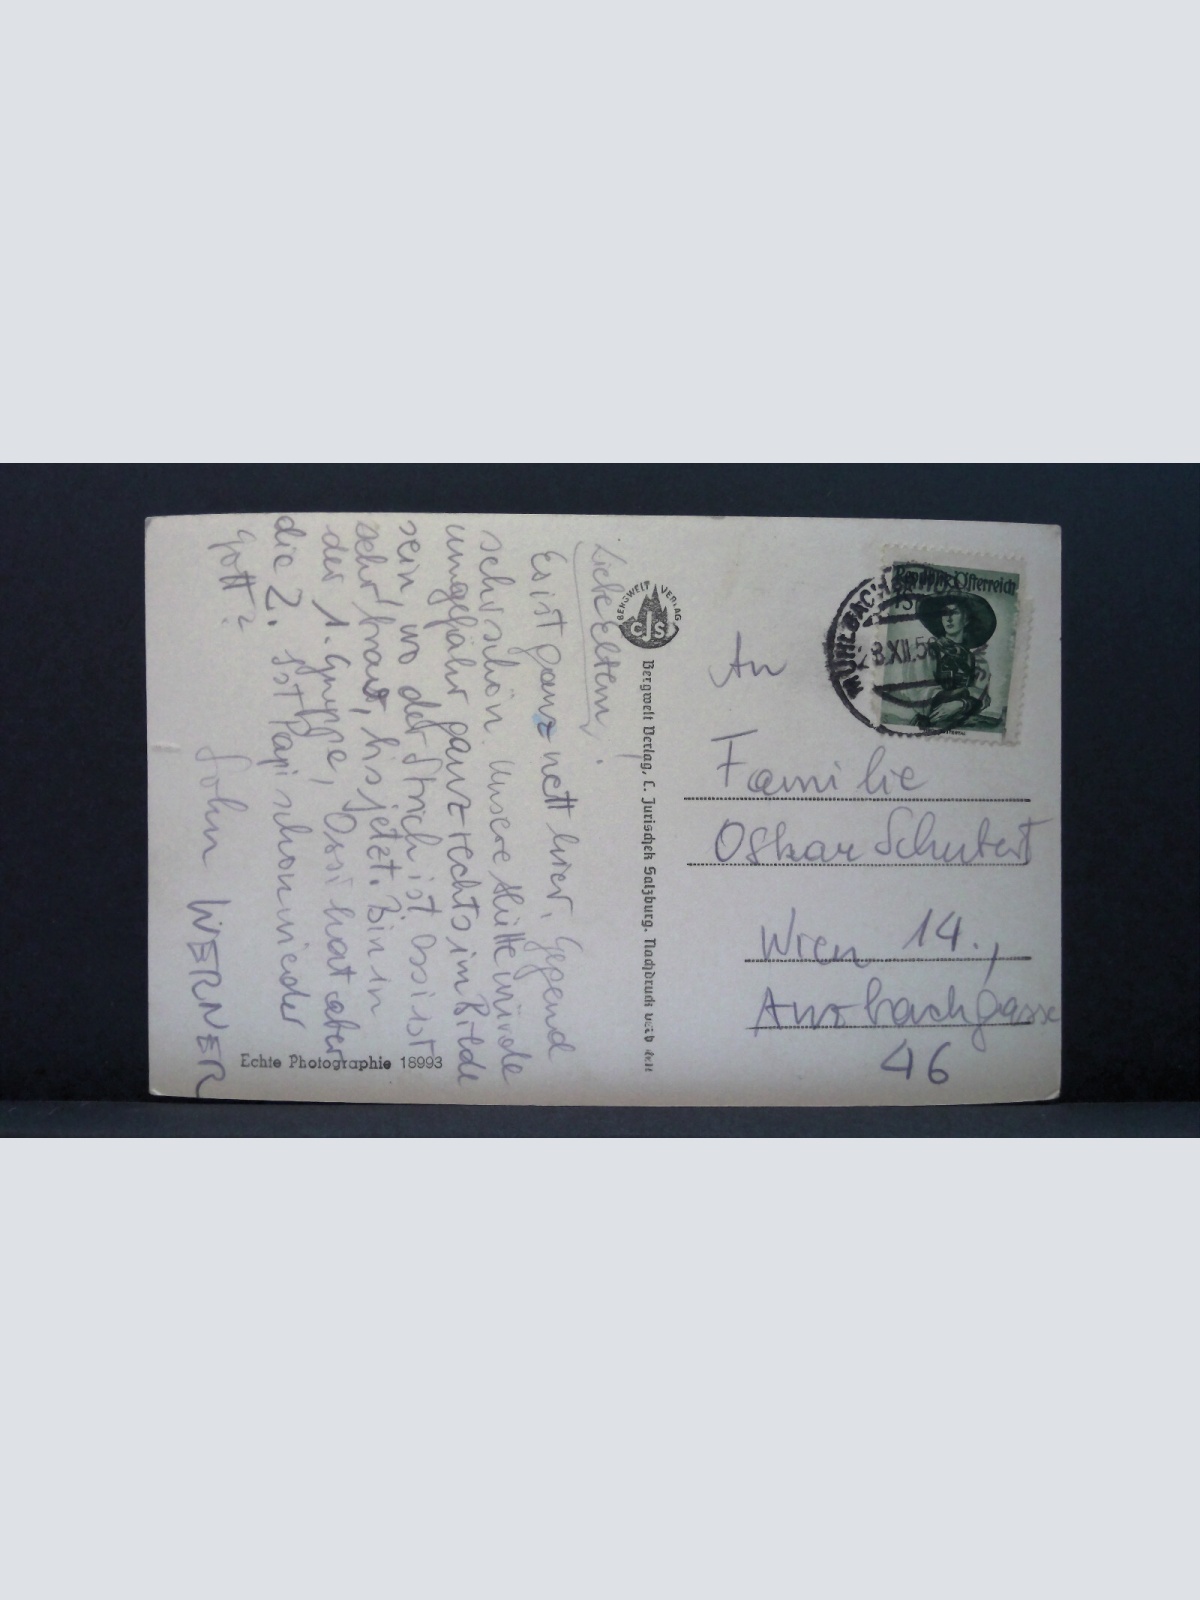 Liebe Eltern!
Es ist ganz nett hier, Gegend
sehr schön. Unsere Hütte würde
ungefähr ganz rechts im Bilde
sein wo der Strich ist Ossi ist
sehr brav, bis jetzt. Bin in
der 1. Gruppe, Ossi hat aber
die 2. Ist Papi schon wieder
gott?
Sohn WERNER
Echte Photographie 18993
BERGWELT VERLAG
CJS
Bergwelt Verlag, C. Jurischek Salzburg. Nachdruck
Republik Österreich
MÜHLBACH
8.XII.5
An
Familie
Oskar Schubert
Wien 14.,
Ansbachgasse
46